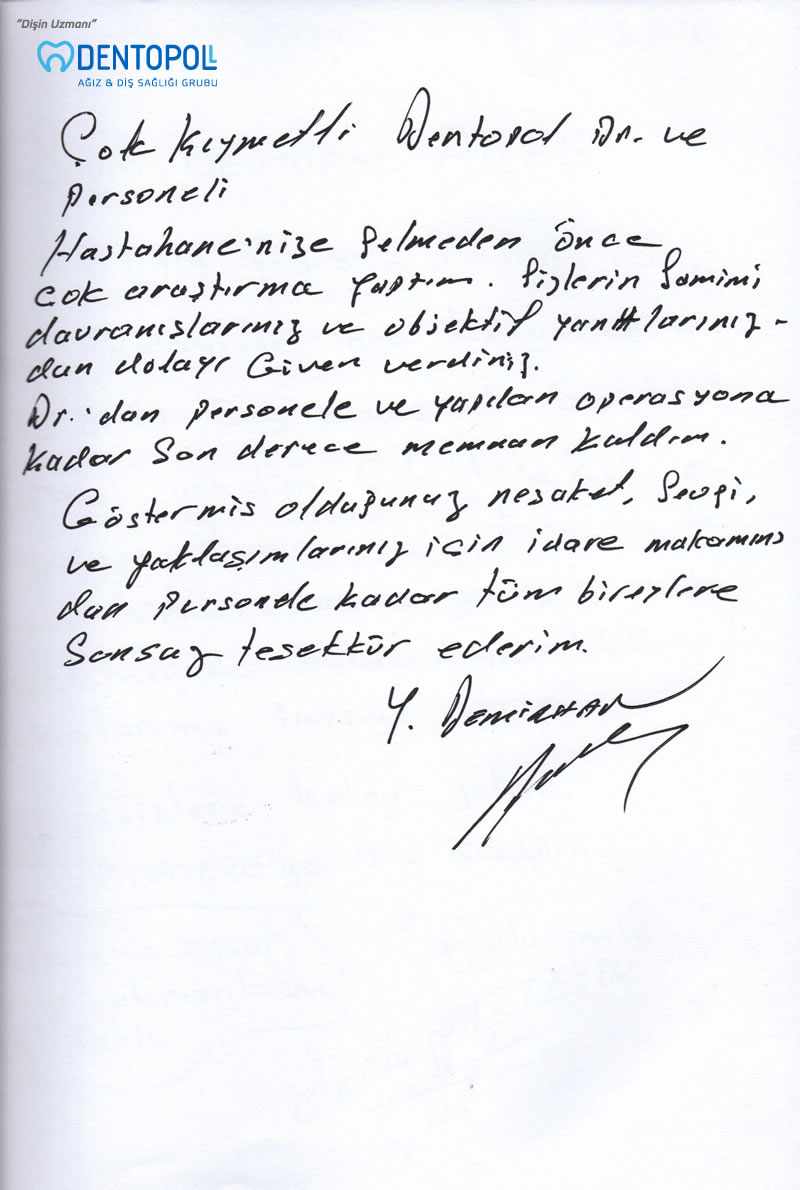 "Dişin Uzmanı"
DENTOPOLL
AĞIZ & DİŞ SAĞLIĞI GRUBU
Çok Kıymetli Dentopol Dr. ve
personeli
Hastahane'nize gelmeden önce
çok araştırma yaptım. Sizlerin Samimi
davranışlarınız ve objektif yanıtlarınız-
dan dolayı Güven verdiniz.
Dr.'dan personele ve yapılan operasyona
kadar son derece memnun kaldım.
Göstermis olduğunuz nezaket, Sevgi,
ve yaklaşımlarınız için idare makamını
dan personele kadar tüm bireylere
Sonsuz teşekkür ederim.
Y. DEMİRHAN